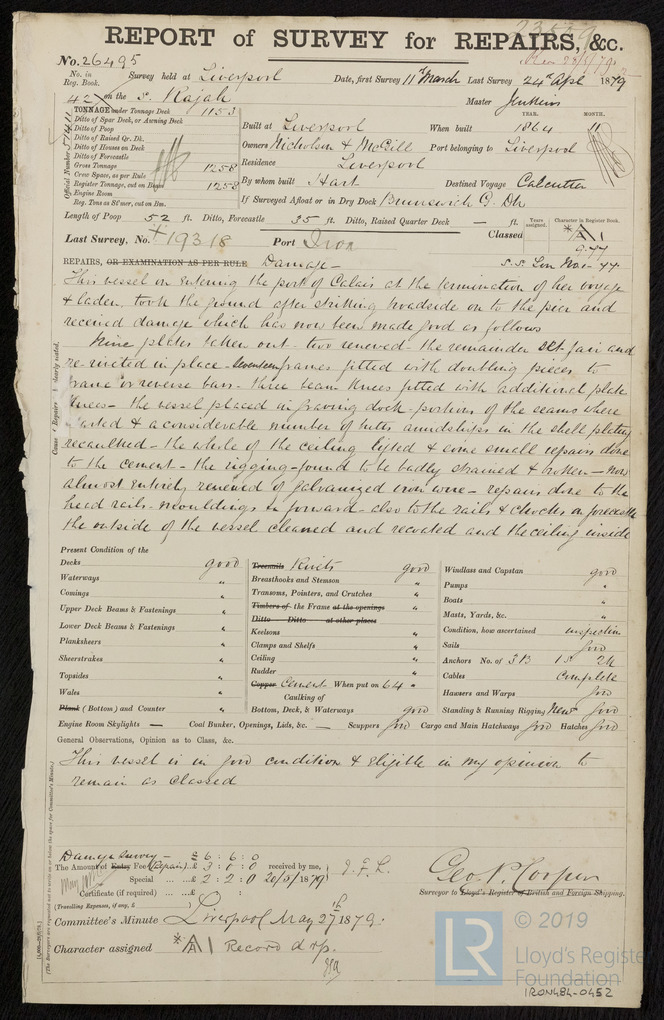 REPORT of SURVEY for REPAIRS, &c.
No. 26495
No. in Reg. Book. Survey held at Liverpool Date, first Survey 11th March Last Survey 24th Apl 1879
42 on the S. Rajah Master Jenkins
TONNAGE under Tonnage Deck 1153
Ditto of Spar Deck, or Awning Deck
Ditto of Poop
Ditto of Raised Qr. Dk.
Ditto of Houses on Deck
Ditto of Forecastle
Gross Tonnage 1258
Crew Space, as per Rule
Register Tonnage, cut on Beam 1258
Engine Room
Reg. Tons as St'mer, cut on Bm.
Official Number 51411
Built at Liverpool When built YEAR. 1864 MONTH. 11
Owners Nicholson & McGill Port belonging to Liverpool
Residence Liverpool
By whom built Hart Destined Voyage Calcutta
If Surveyed Afloat or in Dry Dock Brunswick G. Dk
Length of Poop 52 ft. Ditto, Forecastle 35 ft. Ditto, Raised Quarter Deck — ft.
Years assigned. Character in Register Book.
Last Survey, No. 19318 Port Iron Classed A1
9.77
S.S. Lon No.1-77.
REPAIRS, OR EXAMINATION AS PER RULE Damage —
This vessel on entering the port of Calais at the termination of her voyage
& laden, took the ground after striking broadside on to the pier and
received damage which has now been made good as follows
Nine plates taken out - two renewed - the remainder set fair and
re-riveted in place - seventeen frames fitted with doubling pieces to
frame or reverse bars - three beam knees fitted with additional plate
knees - the vessel placed in graving dock - portions of the seams where
started & a considerable number of butts amidships in the shell plating
recaulked - the whole of the ceiling lifted & some small repairs done
to the cement - the rigging found to be badly strained & broken - now
almost entirely renewed of galvanized iron wire - repairs done to the
head rails - mouldings &c forward - also to the rails & chocks on forecastle
the outside of the vessel cleaned and recoated and the ceiling inside
Cause of Repairs to be clearly stated.
Present Condition of the
Decks good
Waterways "
Comings "
Upper Deck Beams & Fastenings "
Lower Deck Beams & Fastenings "
Planksheers "
Sheerstrakes "
Topsides "
Wales "
Plank (Bottom) and Counter "
Treenails Rivets good
Breasthooks and Stemson "
Transoms, Pointers, and Crutches "
Timbers of the Frame at the openings "
Ditto Ditto at other places
Keelsons "
Clamps and Shelfs "
Ceiling "
Rudder "
Copper Cement When put on 64 "
Caulking of
Bottom, Deck, & Waterways good
Windlass and Capstan good
Pumps "
Boats "
Masts, Yards, &c. "
Condition, how ascertained inspection
Sails good
Anchors No. of 3B 1S 2K
Cables Complete
Hawsers and Warps good
Standing & Running Rigging New good
Engine Room Skylights — Coal Bunker, Openings, Lids, &c. — Scuppers good Cargo and Main Hatchways good Hatches good
General Observations, Opinion as to Class, &c.
This vessel is in good condition & eligible in my opinion to
remain as classed
Damage Survey - £ 6 : 6 : 0
The Amount of Entry Fee (Repair) .. £ 3 : 0 : 0 received by me,
Special ... £ 2 : 2 : 0 20/5/1879
Certificate (if required) ...
(Travelling Expenses, if any, £ )
Surveyor to Lloyd's Register of British and Foreign Shipping.
Committee's Minute Liverpool May 27th 1879.
Character assigned A1 Record drp.
(The Surveyors are requested not to write on or below the space for Committee's Minute.)
© 2019
LR
Lloyd's Register
Foundation
IRON484-0452